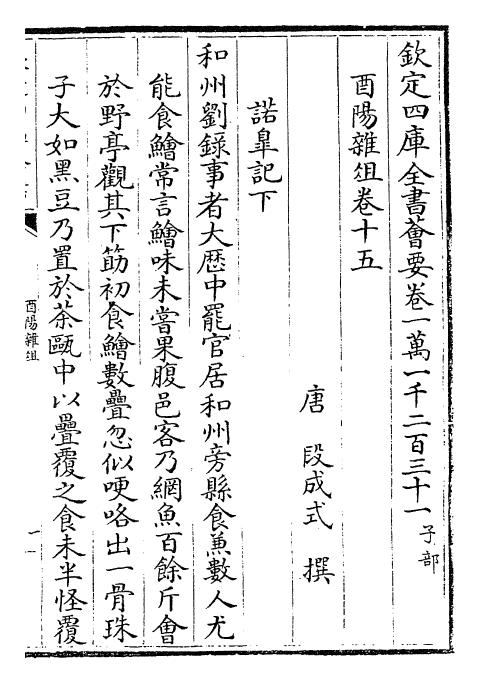 欽定四庫全書薈要卷一萬一千二百三十一 子部
酉陽雜俎卷十五
唐 段成式 撰
諾臯記下
和州劉錄事者大歴中罷官居和州旁縣食兼數人尤
能食鱠常言鱠味未嘗果腹邑客乃網魚百餘斤會
於野亭觀其下筯初食鱠數疊忽似哽咯出一骨珠
子大如黑豆乃置於茶甌中以疊覆之食未半怪覆
酉陽雜俎
一